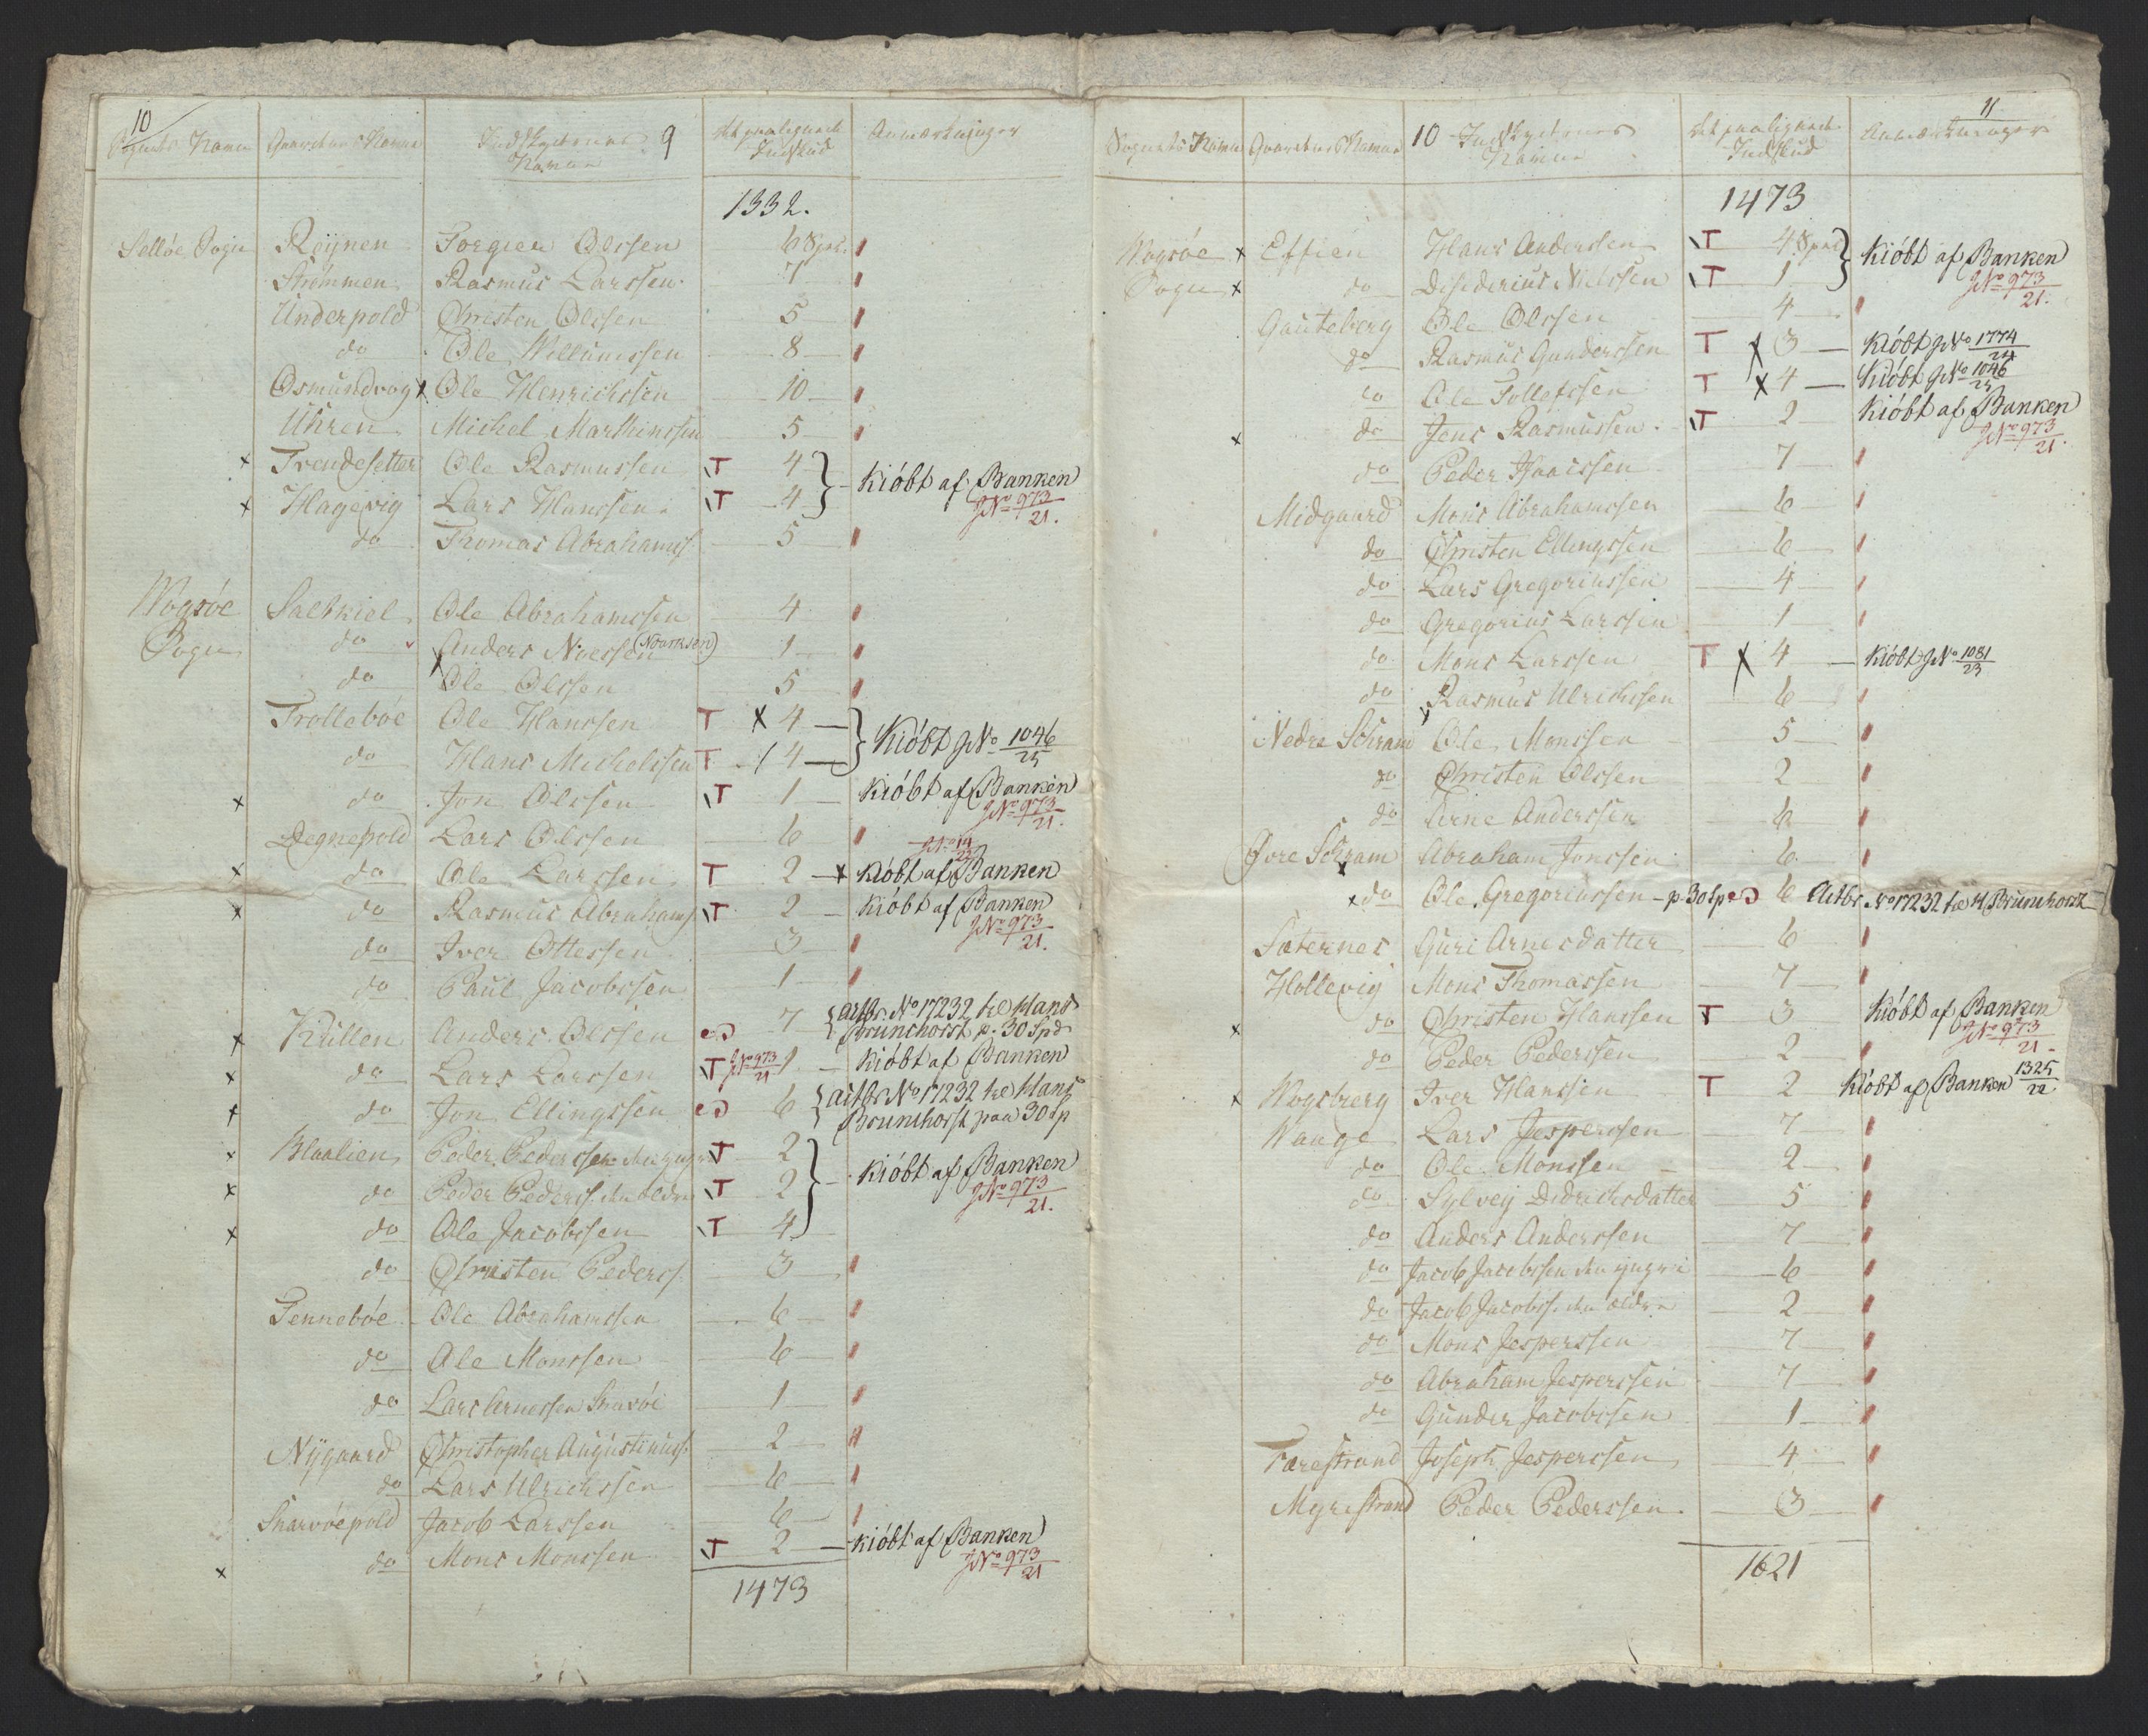 10
Sognets Navn Gaardenes Navne Indskydernes Navne 9 Det paalignede Indskud Anmærkninger
1332.
Selløe Sogn Reÿnen Torgier Olssen 6 Spd.
Strømmen Rasmus Larssen 7
Underpold Christen Olssen 5
do Ole Willumssen 8
Osmundvog x Ole Henrichssen 10
Uhren Michel Marthinssen 5
x Trendesetter Ole Rasmussen T 4 } Kiöbt af Banken
x Hagevig Lars Hanssen T 4 JNo 973/21.
do Thomas Abrahams. 5
Wogsöe Saltkiel Ole Abrahamssen 4
Sogn do Anders Noessen (Noarksen) 1
do Ole Olssen 5
Trolleböe Ole Hanssen T x 4 } Kiöbt JNo 1046/25
do Hans Michelssen T 4
x do Jon Olssen T 1 Kiöbt af Banken
JNo 973/21.
Degnepold Lars Olssen 6
x do Ole Larssen T 2 x Kiöbt af Banken
x do Rasmus Abrahams. T 2 Kiöbt af Banken
JNo 973/21.
do Iver Ottessen 3
do Paul Jacobssen 1
x Kullen Anders Olssen 7 { Actbr. No 17232 til Hans Brunchorst p. 30 Spd
x do Lars Larssen T JNo 973/21 1 Kiöbt af Banken
x do Jon Ellingssen 6 { Actbr No 17232 til Hans Brunchorst paa 30 Sp
x Blaalien Peder Pederssen den yngre T 2
x do Peder Pederss. den ældre T 2 } Kiöbt af Banken
JNo 973/21.
x do Ole Jacobssen T 4
do Christen Pederss. 3
Tenneböe Ole Abrahamssen 6
do Ole Monssen 6
do Lars Arnessen 1
Nÿgaard Christopher Augustinuss. 2
do Lars Ulrichssen 6
Skarvöepold Jacob Larssen 6
x do Mons Monssen T 2 Kiöbt af Banken
JNo 973/21
1473
11
Sognets Navn Gaardenes Navne 10 Indskydernes Navne Det paalignede Indskud Anmærkninger
1473
Wogsöe x Effien Hans Anderssen T 4 Spd } Kiöbt af Banken
Sogn x do Desederius Nielssen T 1 JNo 973/21.
Gauteberg Ole Olssen 4
do Rasmus Gunderssen T x 3 Kiöbt JNo 1774/24
do Ole Tollefssen T x 4 Kiöbt JNo 1046/25
x do Jens Rasmussen T 2 Kiöbt af Banken
JNo 973/21.
do Peder Isaacssen 7
Midgaard Mons Abrahamssen 6
do Christen Ellingssen 6
do Lars Gregoriussen 4
do Gregorius Larssen 1
do Mons Larssen T x 4 Kiöbt JNo 1081/23
do Rasmus Ulrichssen 6
Nedre Schram Ole Monssen 5
do Christen Olssen 2
do Arne Anderssen 6
Øvre Schram Abraham Jonssen 6
x do Ole Gregoriussen p. 30 Sp 6 Actbr No 17232 til H Brunchorst
Sæternes Guri Arnesdatter 6
Hollevig Mons Thomassen 7
x do Christen Hanssen T 3 Kiöbt af Banken
JNo 973/21.
do Peder Pederssen 2
x Wogsberg Iver Hanssen T 2 Kiöbt af Banken 1325/22
Waage Lars Jesperssen 7
do Ole Monssen 2
do Sylvej Didrichsdatter 5
do Anders Anderssen 7
do Jacob Jacobssen den yngre 6
do Jacob Jacobss. den ældre 2
do Mons Jesperssen 7
do Abraham Jesperssen 7
do Gunder Jacobssen 1
Farestrand Joseph Jesperssen 4
Myrestrand Peder Pederssen 3
1621